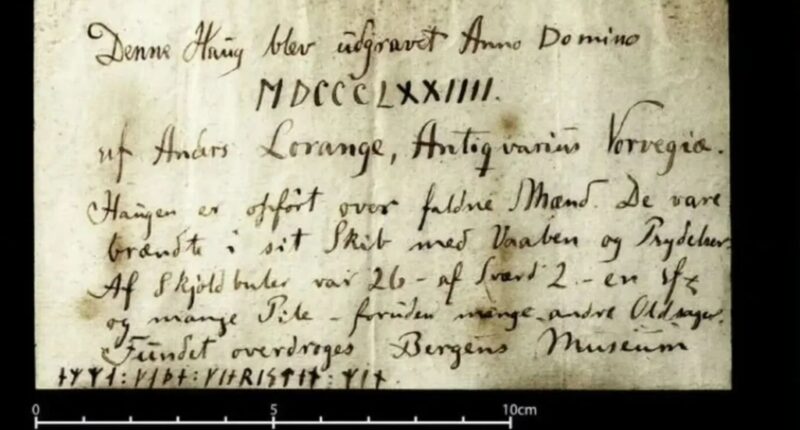 Denne Haug blev udgravet Anno Domino
MDCCCLXXIIII.
af Anders Lorange, Antiqvarius Norvegiæ.
Haugen er opført over faldne Mænd. De vare
brændte i sit Skib med Vaaben og Prydelser.
Af Skjoldbuler var 26 - af Sværd 2 - en
og mange Pile - foruden mange andre Oldsager.
Fundet overdroges Bergens Museum
0 5 10cm